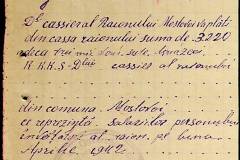 Dl cassieral Raionului Mostovoi va plăti
din cassa raionului suma de 3220
adeca trei mii două sute
K.K.K.S - Dlui cassier al raionului
din comuna Mostovoi
ce reprezintă salariile personalului
al raion. pe luna
Aprilie 1942